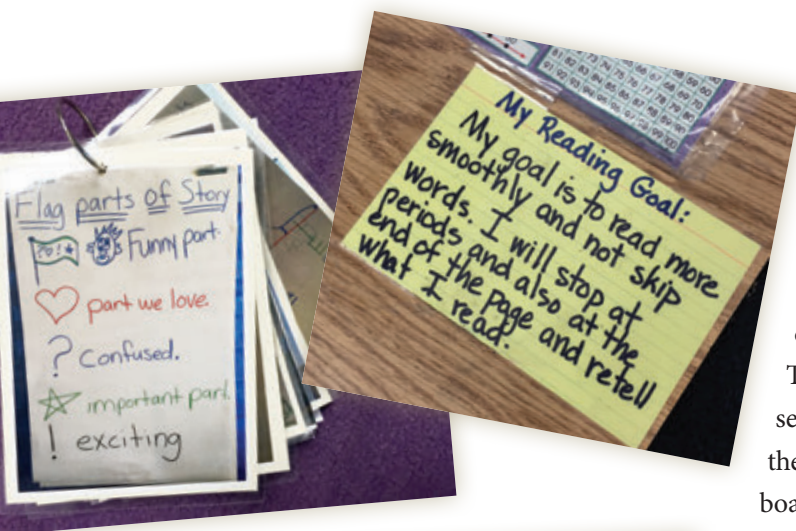 Flag parts of Story
?o!★ Funny part.
part we love.
? Confused.
important part.
! exciting
My Reading Goal:
My goal is to read more
smoothly and not skip
words. I will stop at
periods and also at the
end of the page and retell
what I read.
the